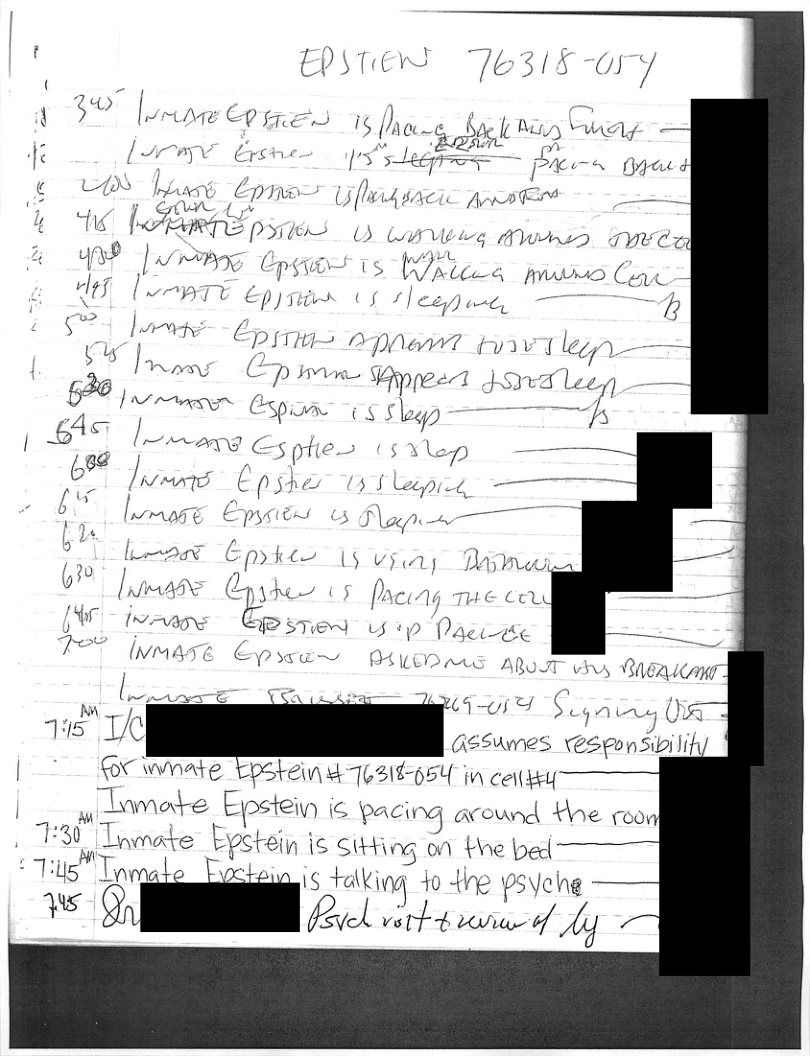 EPSTIEN 76318-054
345 INMATE EPSTIEN IS PACING BACK AND
INMATE Epstien is sleeping PACING BACK
INMATE EPSTIEN IS PACING BACK AND
415 INMATE EPSTIEN IS WALKING AROUND THE CELL
INMATE EPSTIEN IS WALKING AROUND CELL
445 INMATE EPSTIEN IS sleeping B
500 INMATE EPSTIEN APPEARS sleep
INMATE APPEARS sleep
530 INMATE IS sleep B
645 INMATE Esptien is slep
600 INMATE Epstien is sleeping
615 INMATE EPSTIEN is sleeping
620 INMATE Epstien is using
630 INMATE Epstien is PACING THE CELL
645 INMATE EPSTIEN is
700 INMATE EPSTIEN ASKED ME ABOUT HIS BREAKFAST
INMATE -054 Signing Out
7:15 AM I/C assumes responsibility
for inmate Epstein # 76318-054 in cell #4
Inmate Epstein is pacing around the room
7:30 AM Inmate Epstein is sitting on the bed
7:45 AM Inmate Epstein is talking to the psych
745 Dr Psych visit & review of log